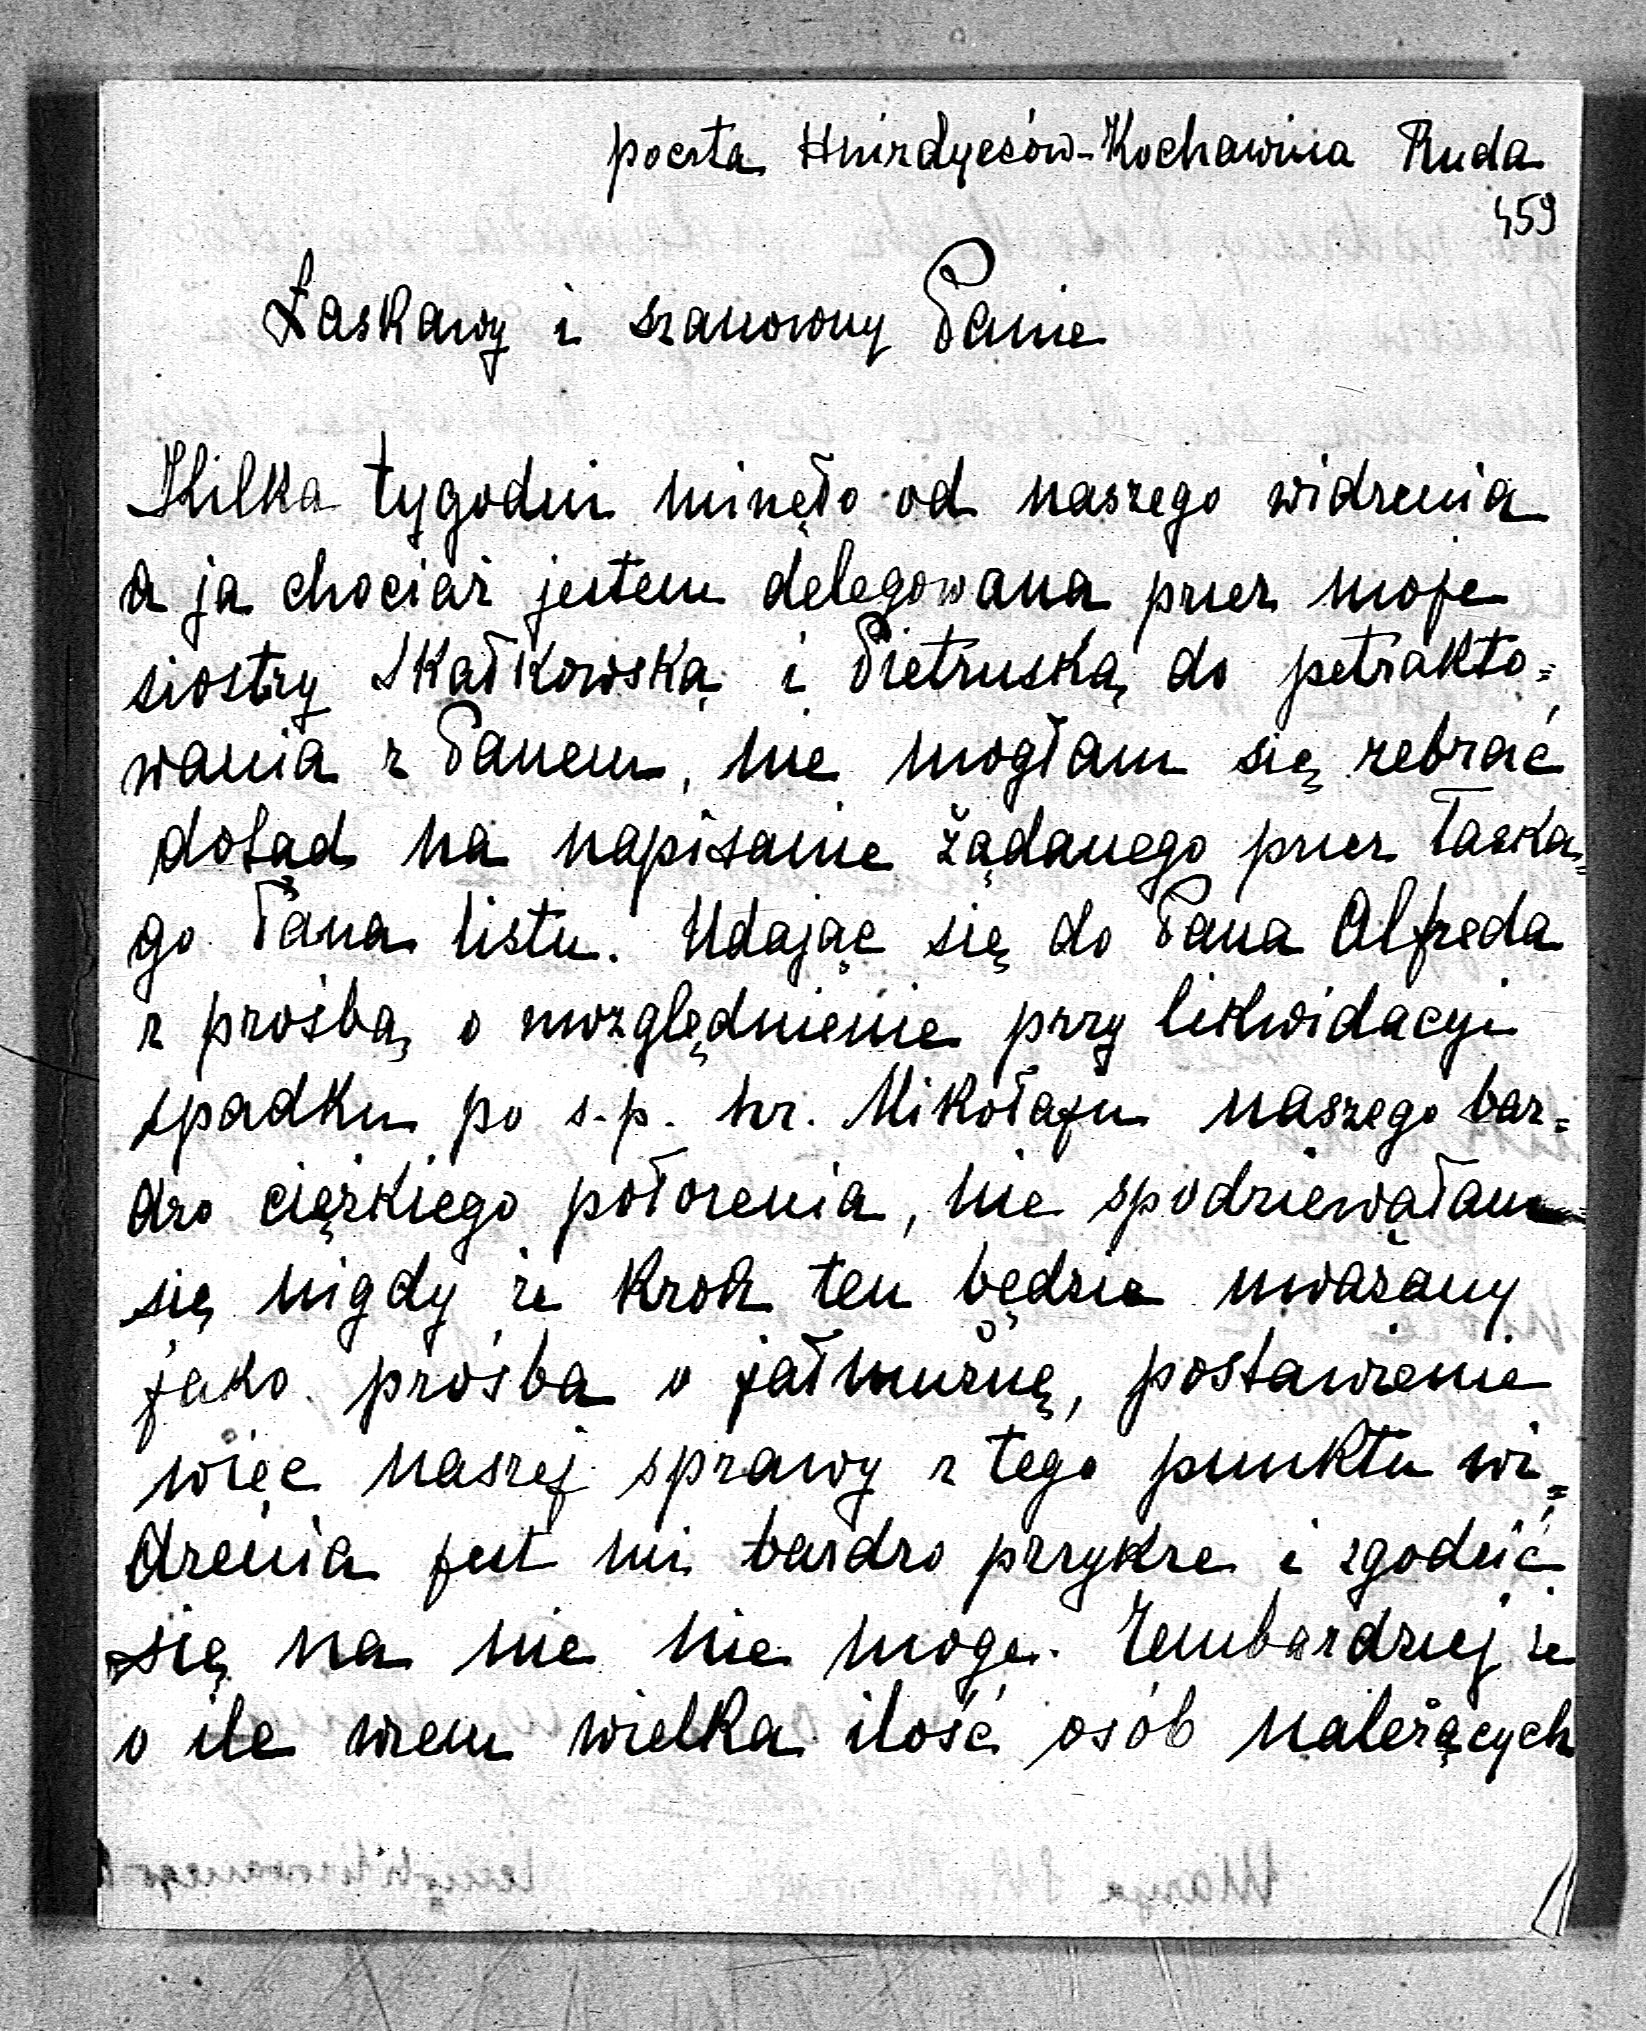 poczta Hnizdyczów-Kochawina Ruda
459
Łaskawy i szanowny Panie
Kilka tygodni minęło od naszego widzenia
a ja chociaż jestem delegowana przez moje
siostry Skałkowską i Pietruską do petrakto=
wania z Panem, nie mogłam się zebrać
dotąd na napisanie żądanego przez łaska=
go Pana listu. Udając się do Pana Alfreda
z prośbą o uwzględnienie przy likwidacyi
spadku po s.p. hr. Mikołaju naszego bar=
dzo ciężkiego położenia, nie spodziewałam
się nigdy że krok ten będzie uważany
jako prośba o jałmużnę, postawienie
więc naszej sprawy z tego punktu wi=
dzenia jest mi bardzo przykre i zgodzić
się na nie nie mogę. Zembardziej że
o ile wiem wielka ilość osób należących